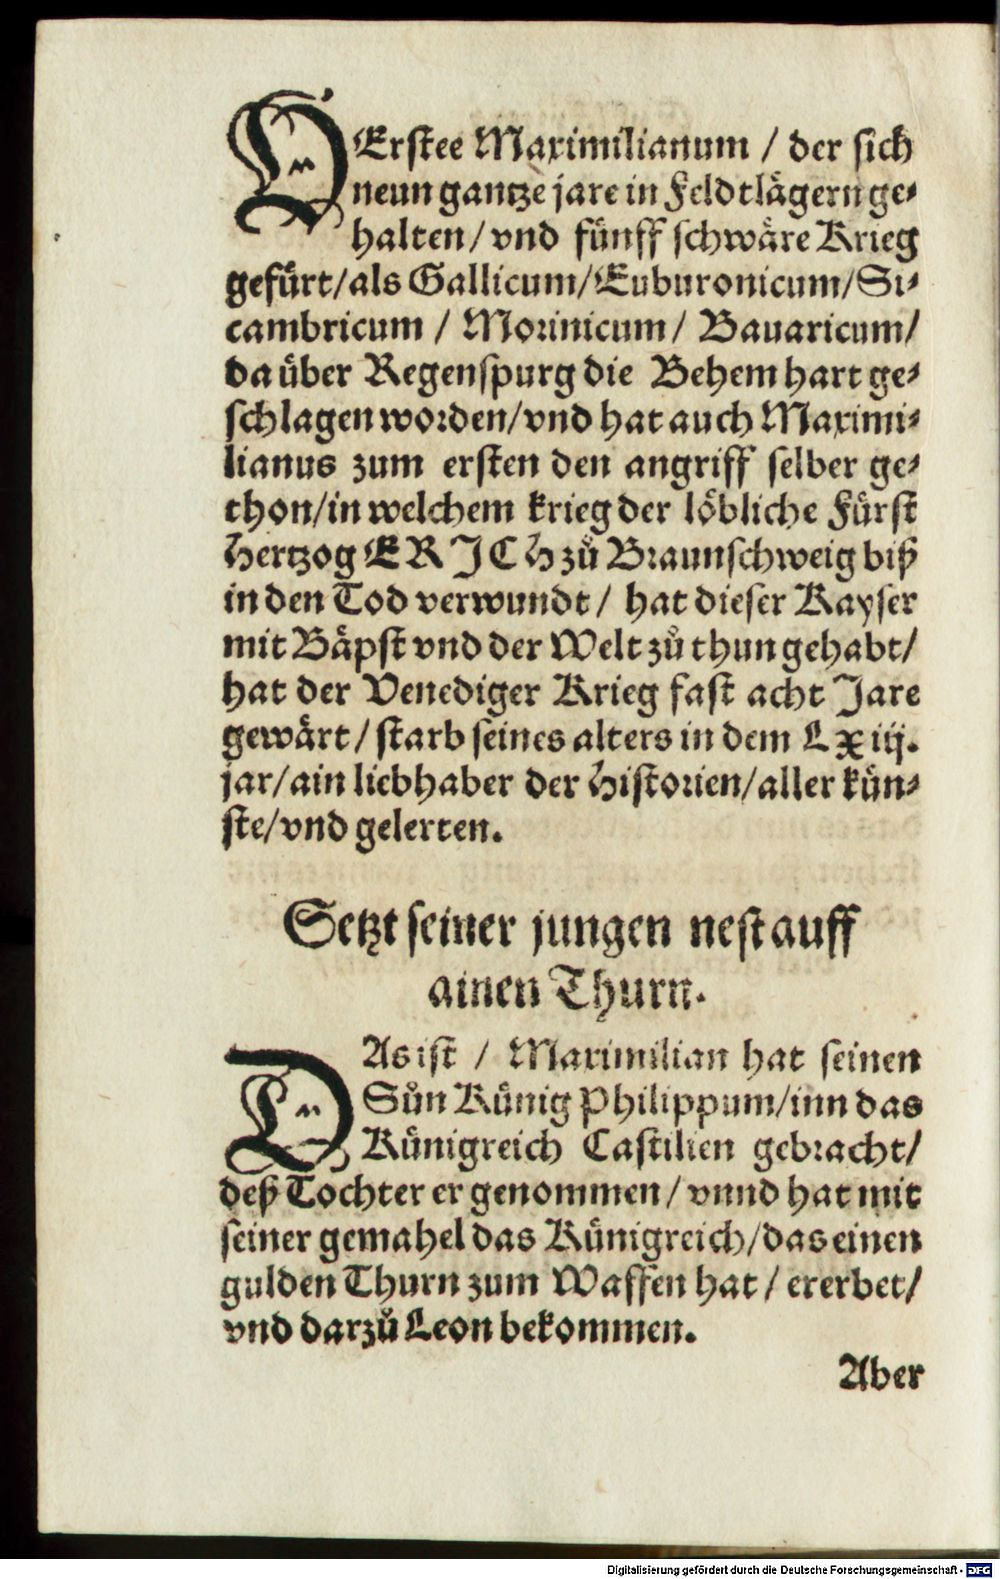 VErstee Maximilianum / der sich
neun gantze jare in Feldtlägern ge⸗
halten/ vnd fünff schwäre Krieg
gefürt/als Gallicum/Euburonicum/Si⸗
cambricum / Morinicum / Bauaricum/
da über Regenspurg die Behem hart ge⸗
schlagen worden/vnd hat auch Maximi⸗
lianus zum ersten den angriff selber ge⸗
thon/in welchem krieg der löbliche Fürst
Hertzog ERJCH zů Braunschweig biß
in den Tod verwundt / hat dieser Kayser
mit Bäpst vnd der Welt zů thun gehabt/
hat der Venediger Krieg fast acht Jare
gewärt / starb seines alters in dem Lxiij.
jar/ain liebhaber der Historien/aller kün⸗
ste/vnd gelerten.
Setzt seiner jungen nest auff
ainen Thurn.
DAs ist / Maximilian hat seinen
Sůn Künig Philippum/inn das
Künigreich Castilien gebracht/
deß Tochter er genommen / vnnd hat mit
seiner gemahel das Künigreich/das einen
gulden Thurn zum Waffen hat / ererbet/
vnd darzů Leon bekommen.
Aber
Digitalisierung gefördert durch die Deutsche Forschungsgemeinschaft - DFG